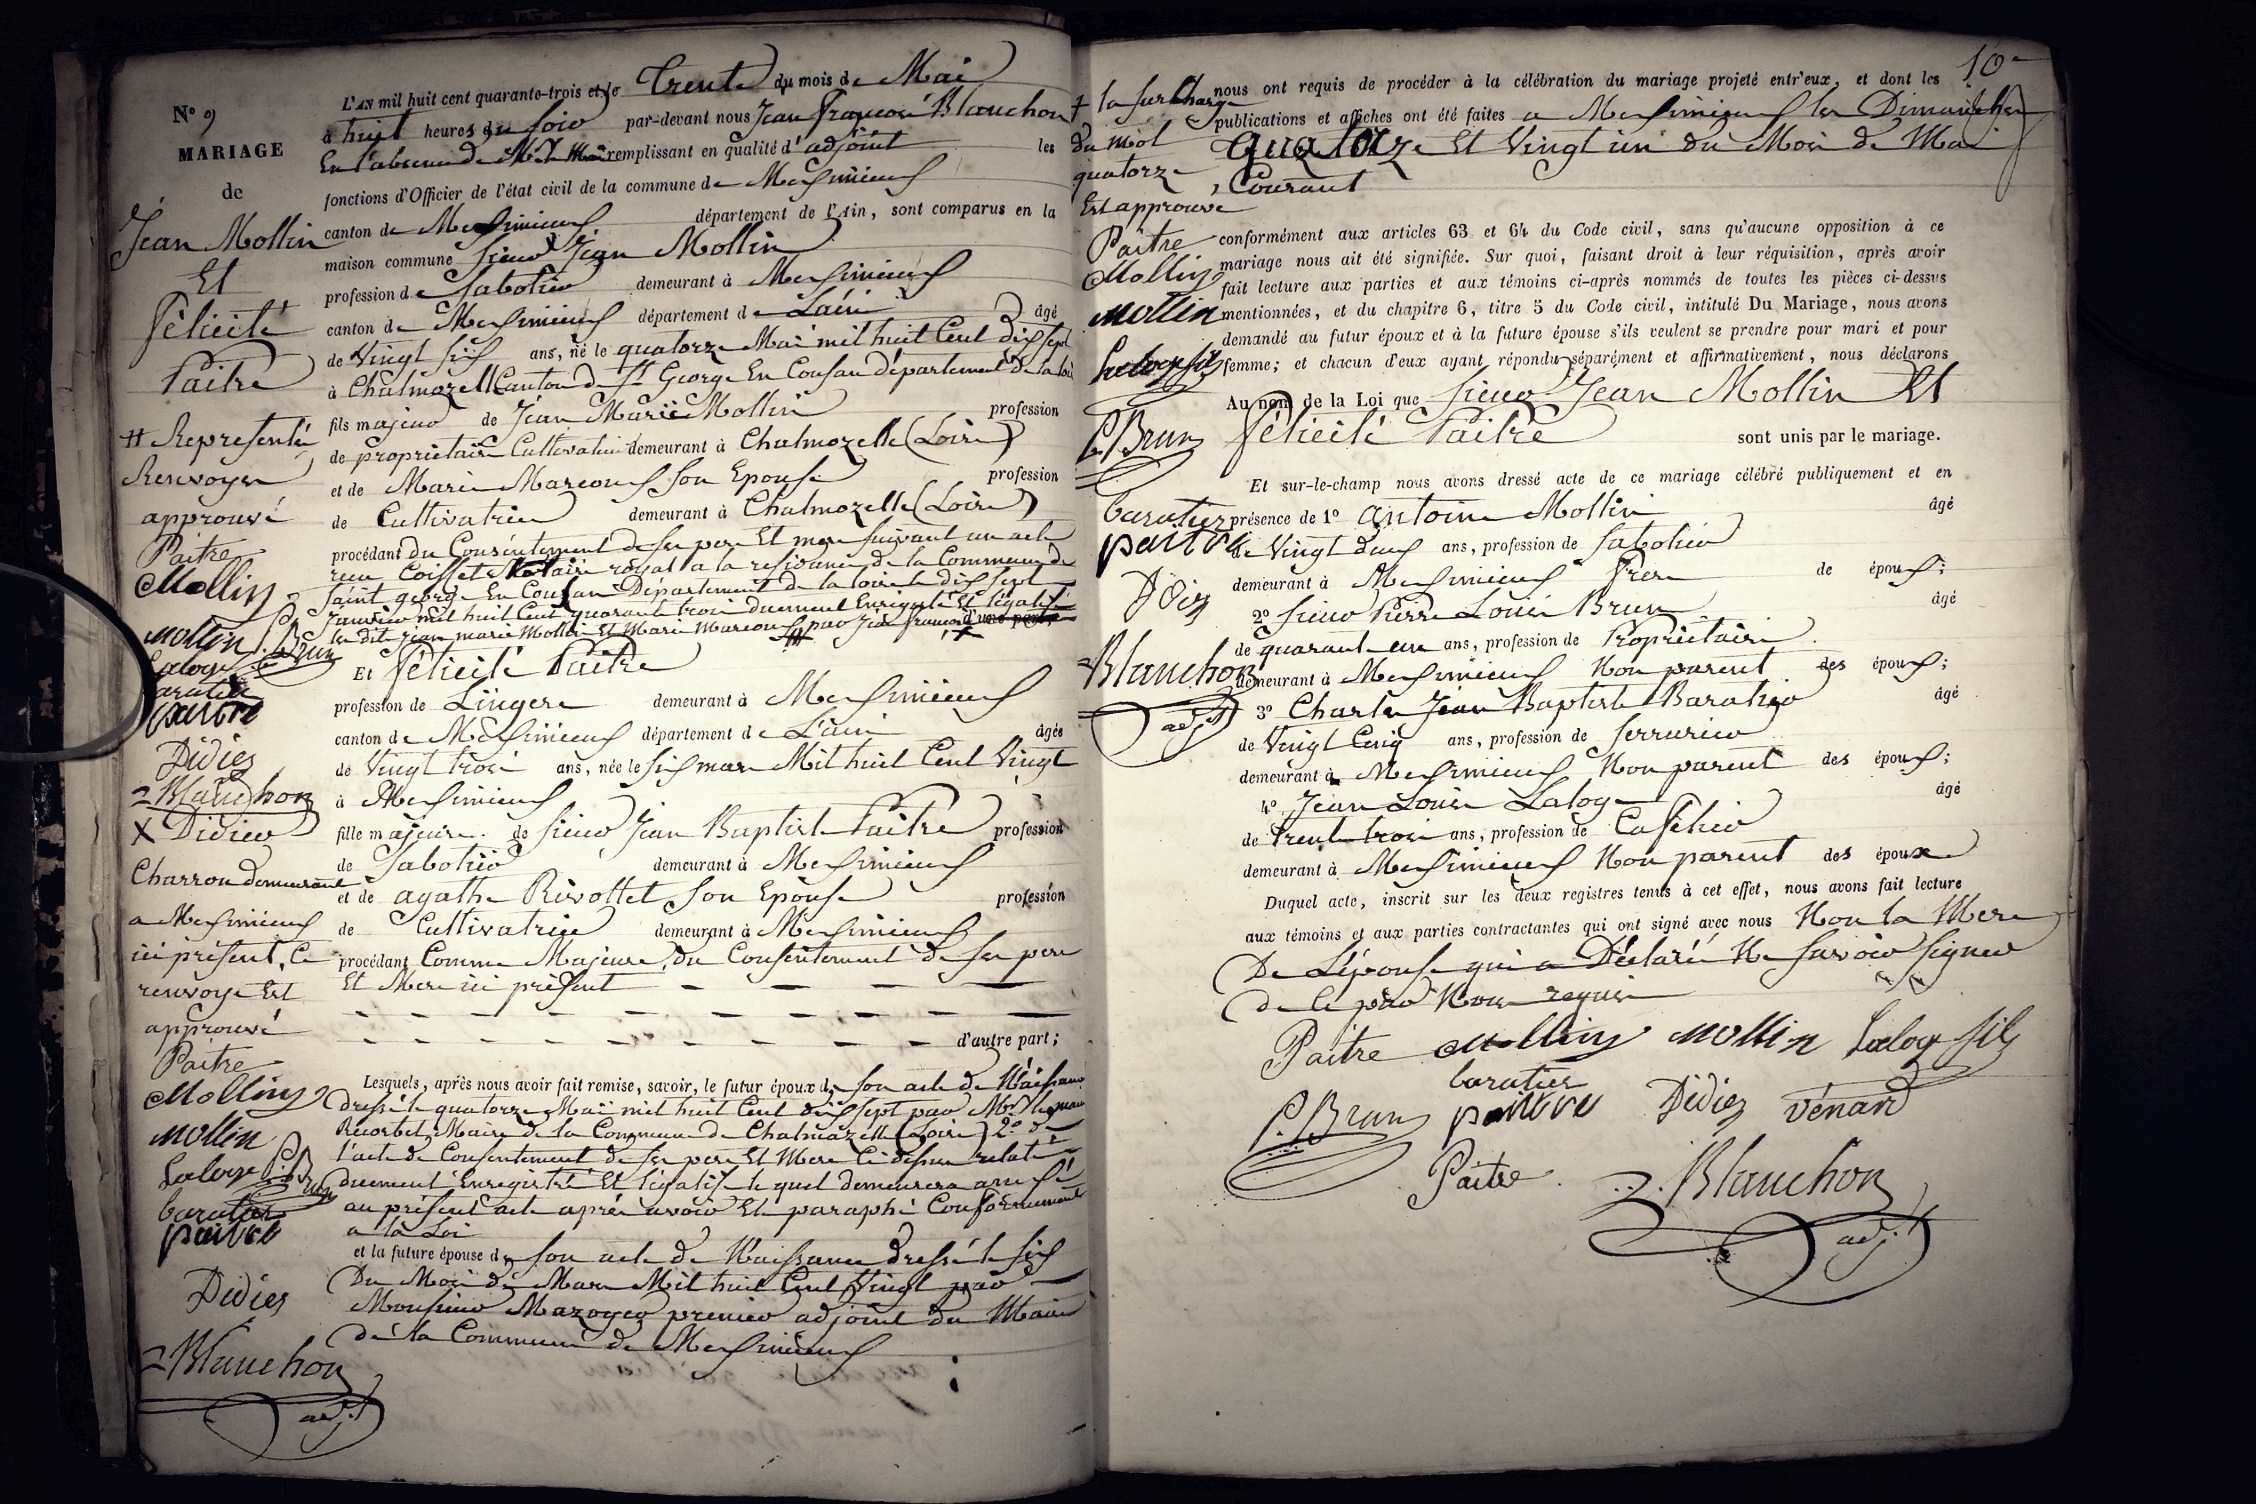 N.º 9
MARIAGE
de
Jean Mollin
Et
Félicité
Paitre
# Representée
Renvoyer
approuvé
Paitre
Mollin
mollin P. Brun
Laloge
baratier
paitre
Didier
Blanchon
X Didier
Charron demeurant
a Meximieux
ici présent, Ce
renvoye Est
approuvé
Paitre
Mollin
mollin
Laloge P. Brun
baratier
paitre
Didier
Blanchon
adj.t
L'AN mil huit cent quarante-trois et le Trente du mois de Mai
à huit heures du soir par-devant nous Jean François Blanchon
En l'absence de Mr le Maire remplissant en qualité d'adjoint les
fonctions d'Officier de l'état civil de la commune de Meximieux
canton de Meximieux département de l'Ain, sont comparus en la
maison commune sieur Jean Mollin
profession de Sabotier demeurant à Meximieux
canton de Meximieux département de Lain âgé
de Vingt six ans, né le quatorze Mai mil huit Cent dix sept
à Chalmazelle Canton de St George En Cousan département de la Loire
fils majeur de Jean Marie Mollin profession
de propriétaire Cultivateur demeurant à Chalmozelle (Loire)
et de Marie Marcoux son Epouse profession
de Cultivatrice demeurant à Chalmozelle (Loire)
procédant du Consentement de ses pere Et mere suivant un acte
recu Coiffet Notaire royal a la residence de la Commune de
Saint george En Cousan Département de la loire le dix sept
Janvier mil huit Cent quarante trois duement Enregistré Et légalisé
les dits jean marie Mollin Et Marie Marcoux # par Jean françois d'une part; X
Et Félicité Paitre
profession de Lingere demeurant à Meximieux
canton de Meximieux département de L'ain âgée
de Vingt trois ans, née le six mars Mil huit Cent Vingt
à Meximieux
fille majeure de sieur Jean Baptiste Paitre profession
de Sabotier demeurant à Meximieux
et de agathe Rivollet son Epouse profession
de Cultivatrice demeurant à Meximieux
procédant Comme Majeure, du Consentement de ses pere
Et Mere ici présent
d'autre part;
Lesquels, après nous avoir fait remise, savoir, le futur époux de son acte de Naissance
dressé le quatorze Mai mil huit Cent dix sept par Mr
Maire de la Commune de Chalmazelle (Loire) 2º de
l'acte de Consentement de ses pere Et Mere Ci dessus relaté
duement Enregistré Et légalisé le quel demeurera annexé
au présent acte après avoir Eté paraphé Conformément
a la Loi
et la future épouse de son acte de Naissance dressé le six
Du Mois de Mars Mil huit Cent Vingt par
Monsieur Mazoyer premier adjoint du Maire
de la Commune de Meximieux
10e
+ la surcharge
du mot
quatorze
Est approuvé
Paitre
Mollin
mollin
Laloge fils
P. Brun
baratier
paitre
Didier
Blanchon
adj.t
nous ont requis de procéder à la célébration du mariage projeté entr'eux, et dont les
publications et affiches ont été faites a Meximieux les Dimanches
quatorze Et Vingt un du Mois de Mai
Courant
conformément aux articles 63 et 64 du Code civil, sans qu'aucune opposition à ce
mariage nous ait été signifiée. Sur quoi, faisant droit à leur réquisition, après avoir
fait lecture aux parties et aux témoins ci-après nommés de toutes les pièces ci-dessus
mentionnées, et du chapitre 6, titre 5 du Code civil, intitulé Du Mariage, nous avons
demandé au futur époux et à la future épouse s'ils veulent se prendre pour mari et pour
femme; et chacun d'eux ayant répondu séparément et affirmativement, nous déclarons
Au nom de la Loi que sieur Jean Mollin Et
Félicité Paitre sont unis par le mariage.
Et sur-le-champ nous avons dressé acte de ce mariage célébré publiquement et en
présence de 1º antoine Mollin âgé
de Vingt deux ans, profession de Sabotier
demeurant à Meximieux Frere de époux;
2º sieur Pierre Louis Brun âgé
de quarante un ans, profession de Propriétaire
demeurant à Meximieux Non parent des époux;
3º Charles Jean Baptiste Baratier âgé
de Vingt Cinq ans, profession de Serrurier
demeurant à Meximieux Non parent des époux;
4º Jean Louis Laloge âgé
de Trente trois ans, profession de Cafetier
demeurant à Meximieux Non parent des époux
Duquel acte, inscrit sur les deux registres tenus à cet effet, nous avons fait lecture
aux témoins et aux parties contractantes qui ont signé avec nous Non la Mere
De L'épouse qui a Déclaré Ne savoir signer
de Ce par Nous requis
Paitre Mollin mollin Laloge fils
baratier
P. Brun paitre Didier Vénard
Paitre Blanchon
adj.t